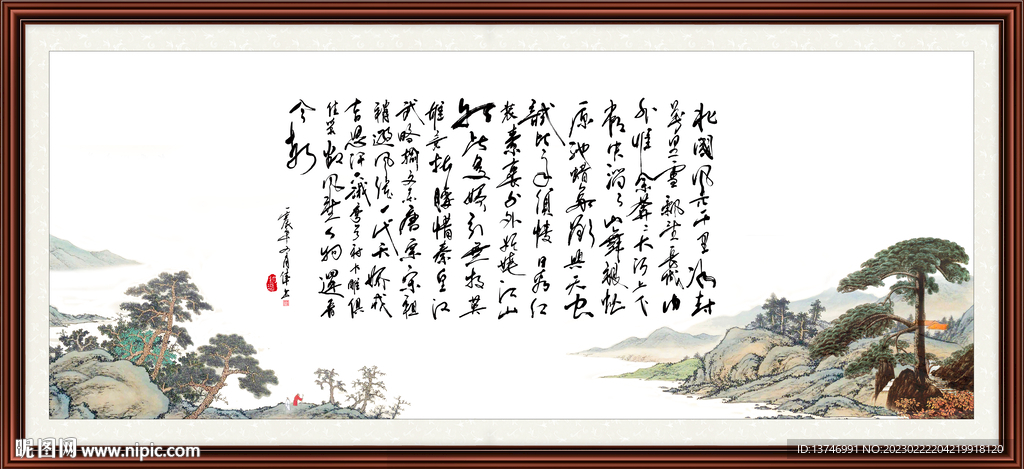 北國風光千里冰封
萬里雪飄望長城内
外惟余莽莽大河上下
頓失滔滔山舞銀蛇
原馳蠟象欲與天公
試比高須晴日看紅
裝素裹分外妖嬈江山
如此多嬌引無數英
雄競折腰惜秦皇漢
武略輸文采唐宗宋祖
稍遜風騷一代天驕成
吉思汗只識彎弓射大雕俱
往矣數風流人物還看
今朝
昵图网 www.nipic.com
ID:13746991 NO:20230222204219918120